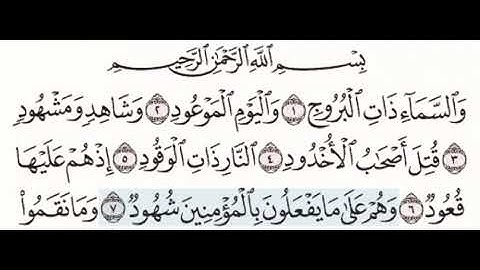 بِسْمِ ٱللَّهِ ٱلرَّحْمَٰنِ ٱلرَّحِيمِ
وَٱلسَّمَآءِ ذَاتِ ٱلْبُرُوجِ ١ وَٱلْيَوْمِ ٱلْمَوْعُودِ ٢ وَشَاهِدٍ وَمَشْهُودٍ
٣ قُتِلَ أَصْحَٰبُ ٱلْأُخْدُودِ ٤ ٱلنَّارِ ذَاتِ ٱلْوَقُودِ ٥ إِذْ هُمْ عَلَيْهَا
قُعُودٌ ٦ وَهُمْ عَلَىٰ مَا يَفْعَلُونَ بِٱلْمُؤْمِنِينَ شُهُودٌ ٧ وَمَا نَقَمُوا۟